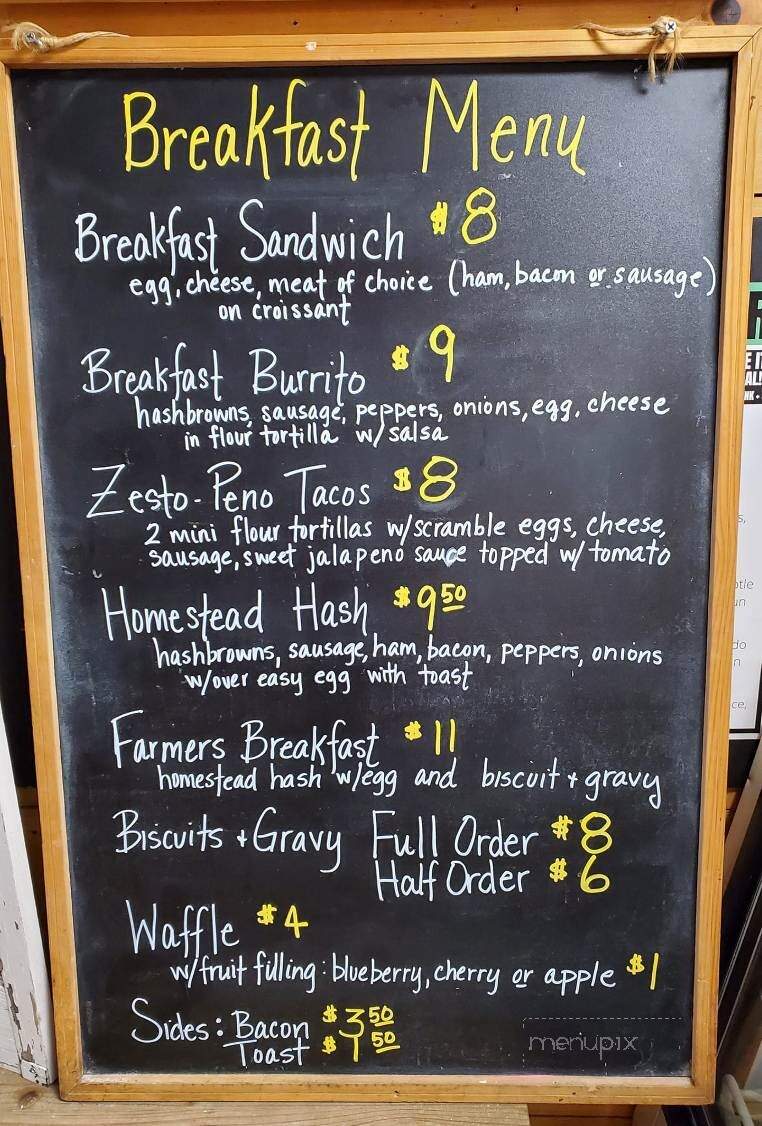 Breakfast Menu
Breakfast Sandwich $8
egg, cheese, meat of choice (ham, bacon or sausage)
on croissant
Breakfast Burrito $9
hashbrowns, sausage, peppers, onions, egg, cheese
in flour tortilla w/salsa
Zesto-Peno Tacos $8
2 mini flour tortillas w/scramble eggs, cheese,
sausage, sweet jalapeno sauce topped w/ tomato
Homestead Hash $9.50
hashbrowns, sausage, ham, bacon, peppers, onions
w/over easy egg with toast
Farmers Breakfast $11
homestead hash w/egg and biscuit + gravy
Biscuits + Gravy Full Order $8
Half Order $6
Waffle $4
w/fruit filling: blueberry, cherry or apple $1
Sides: Bacon $3 50
Toast $1 50
menupix